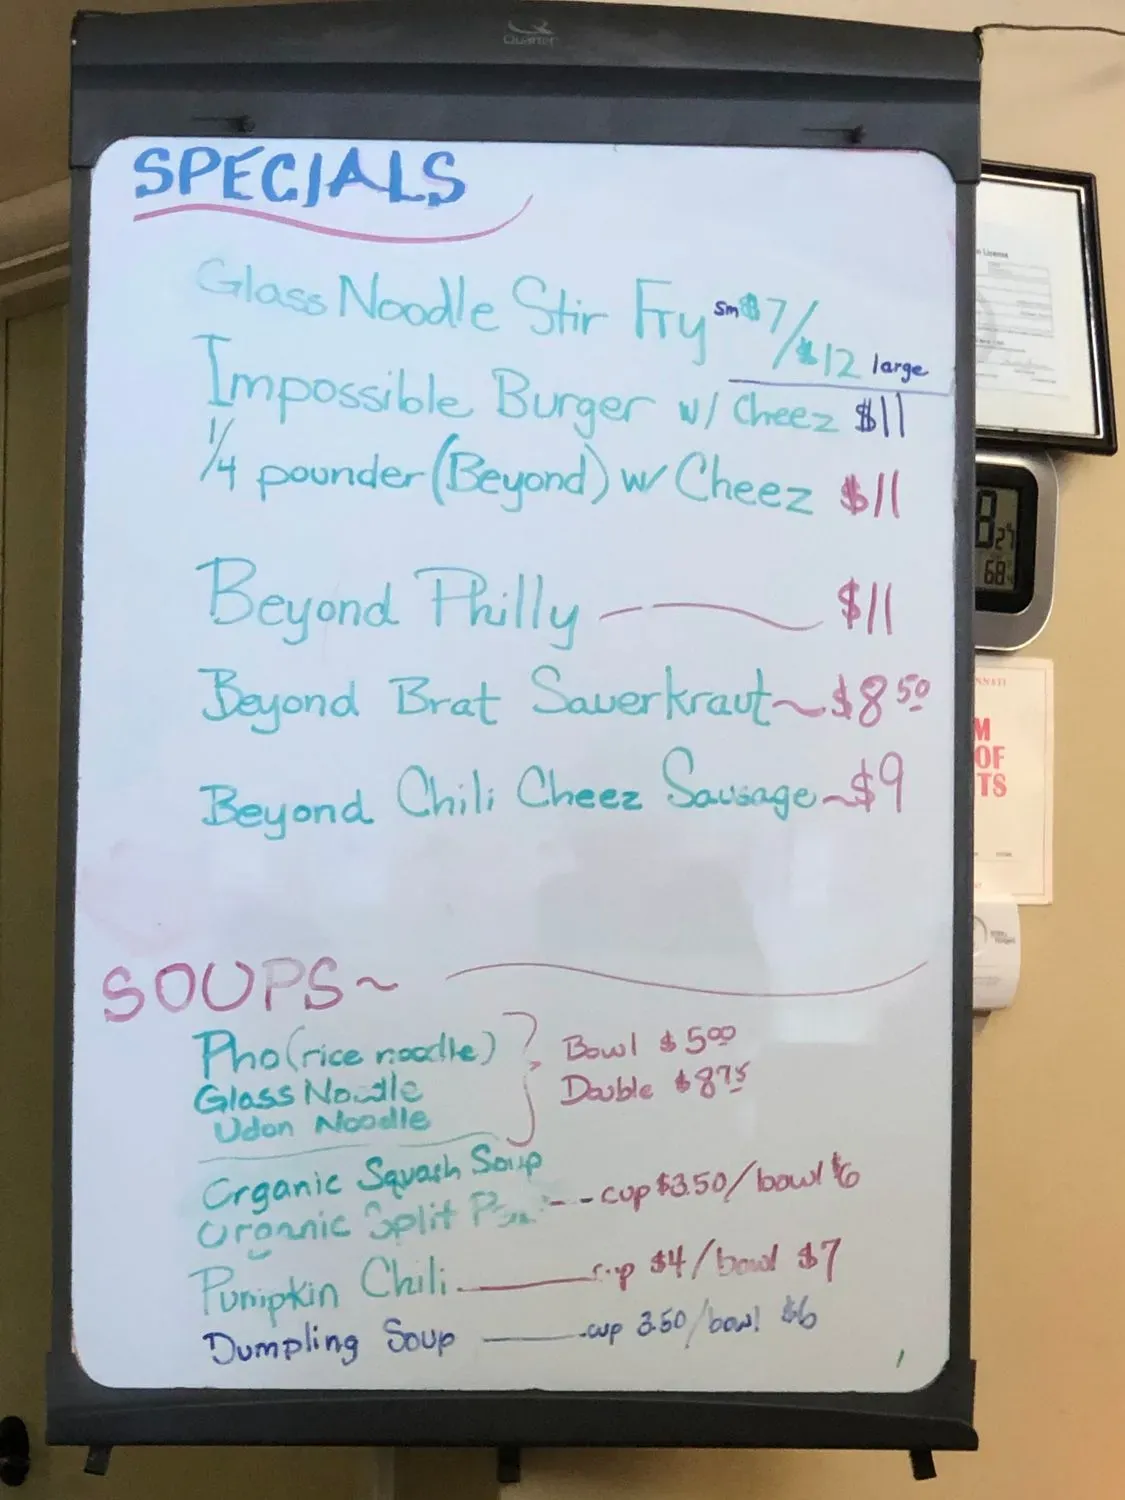 Quartet
SPECIALS
Glass Noodle Stir Fry sm $7/
$12 large
Impossible Burger w/ Cheez $11
1/4 pounder (Beyond) w/ Cheez $11
Beyond Philly $11
Beyond Brat Sauerkraut ~ $8 50
Beyond Chili Cheez Sausage ~ $9
SOUPS ~
Pho (rice noodle)
Glass Noodle
Udon Noodle
Bowl $5 00
Double $8 75
Organic Squash Soup
Organic Split -- cup $3.50/bowl $6
Pumpkin Chili cup $4/bowl $7
Dumpling Soup cup 3.50/bowl $6
License
8 27
68
M
OF
TS